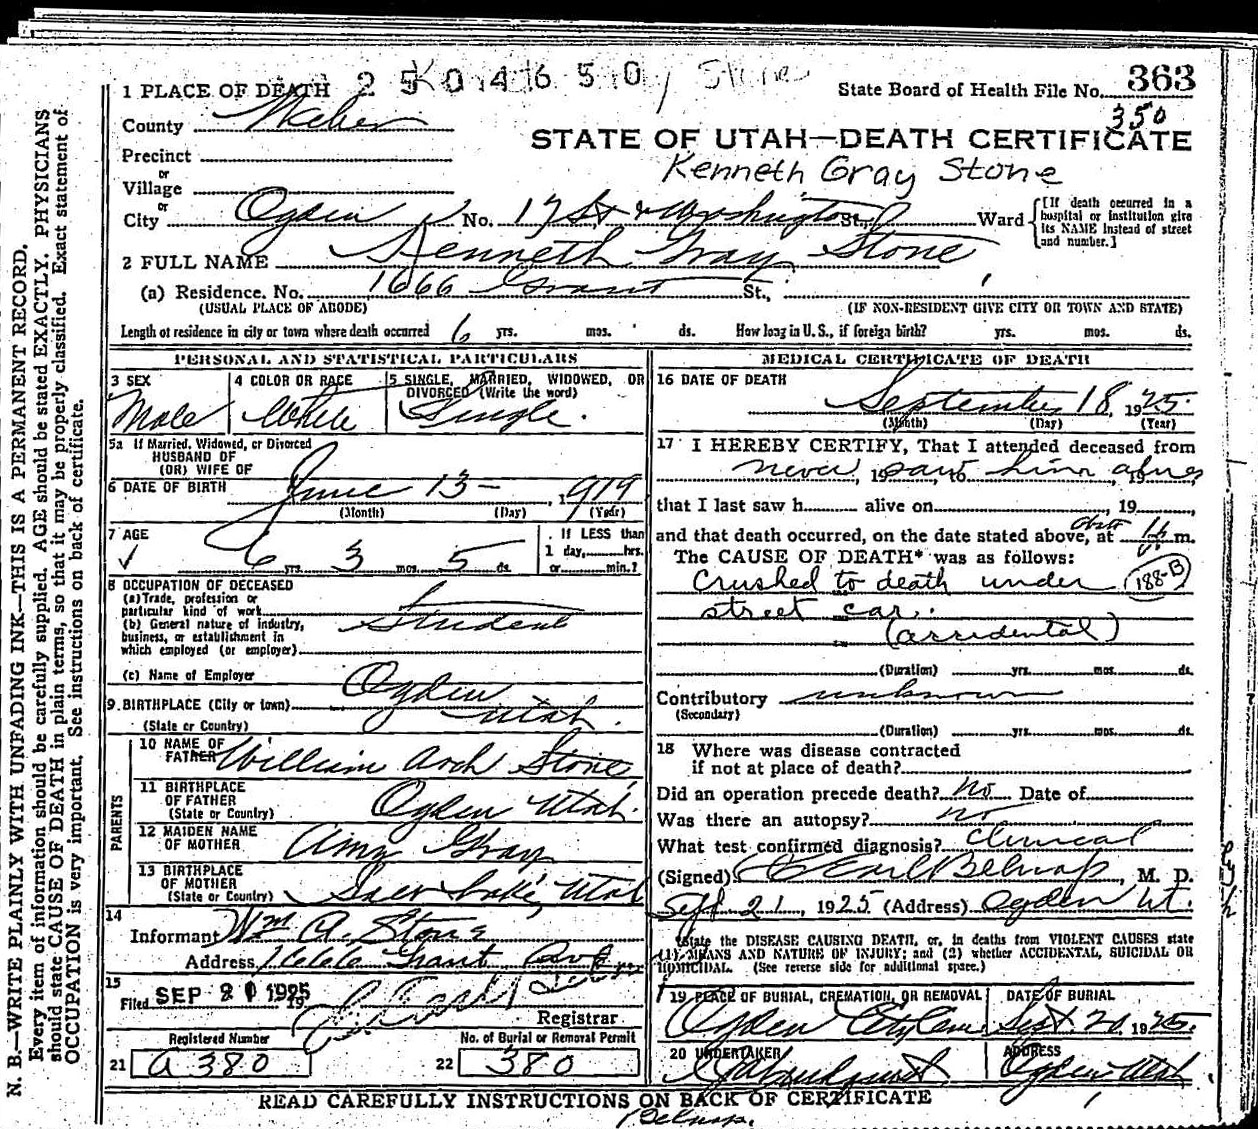 2504650
State Board of Health File No. 363
350
1 PLACE OF DEATH
County Weber
STATE OF UTAH—DEATH CERTIFICATE
Precinct
or
Village
Kenneth Gray Stone
or
City Ogden No. 17 St & Washington St., Ward
[If death occurred in a hospital or institution give its NAME instead of street and number.]
2 FULL NAME Kenneth Gray Stone
(a) Residence. No. 1666 Grant St.,
(USUAL PLACE OF ABODE) (IF NON-RESIDENT GIVE CITY OR TOWN AND STATE)
Length of residence in city or town where death occurred 6 yrs. mos. ds. How long in U. S., if foreign birth? yrs. mos. ds.
PERSONAL AND STATISTICAL PARTICULARS
3 SEX
Male
4 COLOR OR RACE
White
5 SINGLE, MARRIED, WIDOWED, OR DIVORCED (Write the word)
Single.
5a If Married, Widowed, or Divorced
HUSBAND OF
(OR) WIFE OF
6 DATE OF BIRTH June 13 - , 1919
(Month) (Day) (Year)
7 AGE
✓ 6 yrs. 3 mos. 5 ds.
If LESS than
1 day, hrs.
or min.?
8 OCCUPATION OF DECEASED
(a) Trade, profession or
particular kind of work
(b) General nature of industry,
business, or establishment in
which employed (or employer)
Student
(c) Name of Employer
9. BIRTHPLACE (City or town) Ogden
(State or Country) Utah.
PARENTS
10 NAME OF FATHER William Arch Stone
11 BIRTHPLACE OF FATHER
(State or Country) Ogden Utah.
12 MAIDEN NAME OF MOTHER Amy Gray
13 BIRTHPLACE OF MOTHER
(State or Country) Salt Lake, Utah
14
Informant Wm A. Stone
Address 1666 Grant Ave
15
Filed SEP 21 1925 19
Registrar.
Registered Number
21 a 380
No. of Burial or Removal Permit
22 380
MEDICAL CERTIFICATE OF DEATH
16 DATE OF DEATH
September 18, 1925
(Month) (Day) (Year)
17 I HEREBY CERTIFY, That I attended deceased from
never, 19 saw, to him alive, 19
that I last saw h alive on , 19
and that death occurred, on the date stated above, at m.
The CAUSE OF DEATH* was as follows:
Crushed to death under 188-B
street car.
(accidental)
(Duration) yrs. mos. ds.
Contributory unknown
(Secondary)
(Duration) yrs. mos. ds.
18 Where was disease contracted
if not at place of death?
Did an operation precede death? No Date of
Was there an autopsy? no
What test confirmed diagnosis? Clinical
(Signed) Earl Belnap, M. D.
Sept 21, 1925 (Address) Ogden Ut.
*State the DISEASE CAUSING DEATH, or, in deaths from VIOLENT CAUSES state
(1) MEANS AND NATURE OF INJURY; and (2) whether ACCIDENTAL, SUICIDAL OR
HOMICIDAL. (See reverse side for additional space.)
19 PLACE OF BURIAL, CREMATION, OR REMOVAL
Ogden City Cem
DATE OF BURIAL
Sept 20, 1925.
20 UNDERTAKER
ADDRESS
Ogden Utah
READ CAREFULLY INSTRUCTIONS ON BACK OF CERTIFICATE
Belnap.
N. B.—WRITE PLAINLY WITH UNFADING INK—THIS IS A PERMANENT RECORD.
Every item of information should be carefully supplied. AGE should be stated EXACTLY. PHYSICIANS
should state CAUSE OF DEATH in plain terms, so that it may be properly classified. Exact statement of
OCCUPATION is very important. See instructions on back of certificate.